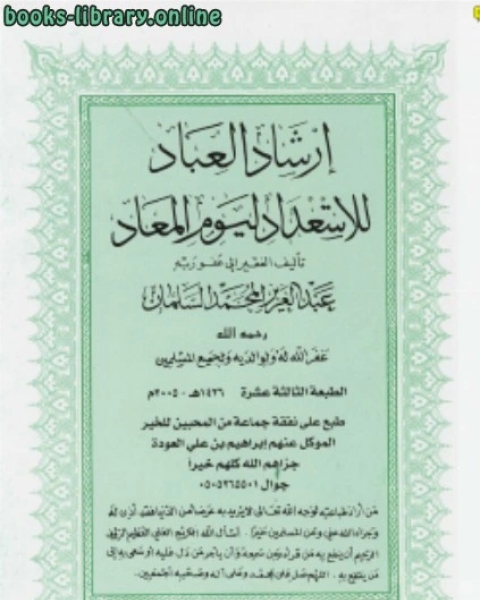 books-library.online
إرشاد العباد
للاستعداد ليوم المعاد
تأليف الفقير إلى عفو ربه
عبد العزيز المحمد السلمان
رحمه الله
غفر الله له ولوالديه ولجميع المسلمين
الطبعة الثالثة عشرة ١٤٢٦هـ - ٢٠٠٥م
طبع على نفقة جماعة من المحبين للخير
الموكل عنهم إبراهيم بن علي العودة
جزاهم الله كلهم خيرا
جوال ٠٥٠٥٢٦٥٥٠١
من أراد طباعته لوجه الله تعالى لا يريد به عرضا من الدنيا فقد أذن له
وجزاه الله عني وعن المسلمين خيرا. أسأل الله الكريم العلي العظيم الرؤوف
الرحيم أن ينفع به من قرأه ومن سمعه وأن يأجر من دل عليه أو سعى به إلى
من ينتفع به. اللهم صل على محمد وعلى آله وصحبه أجمعين.